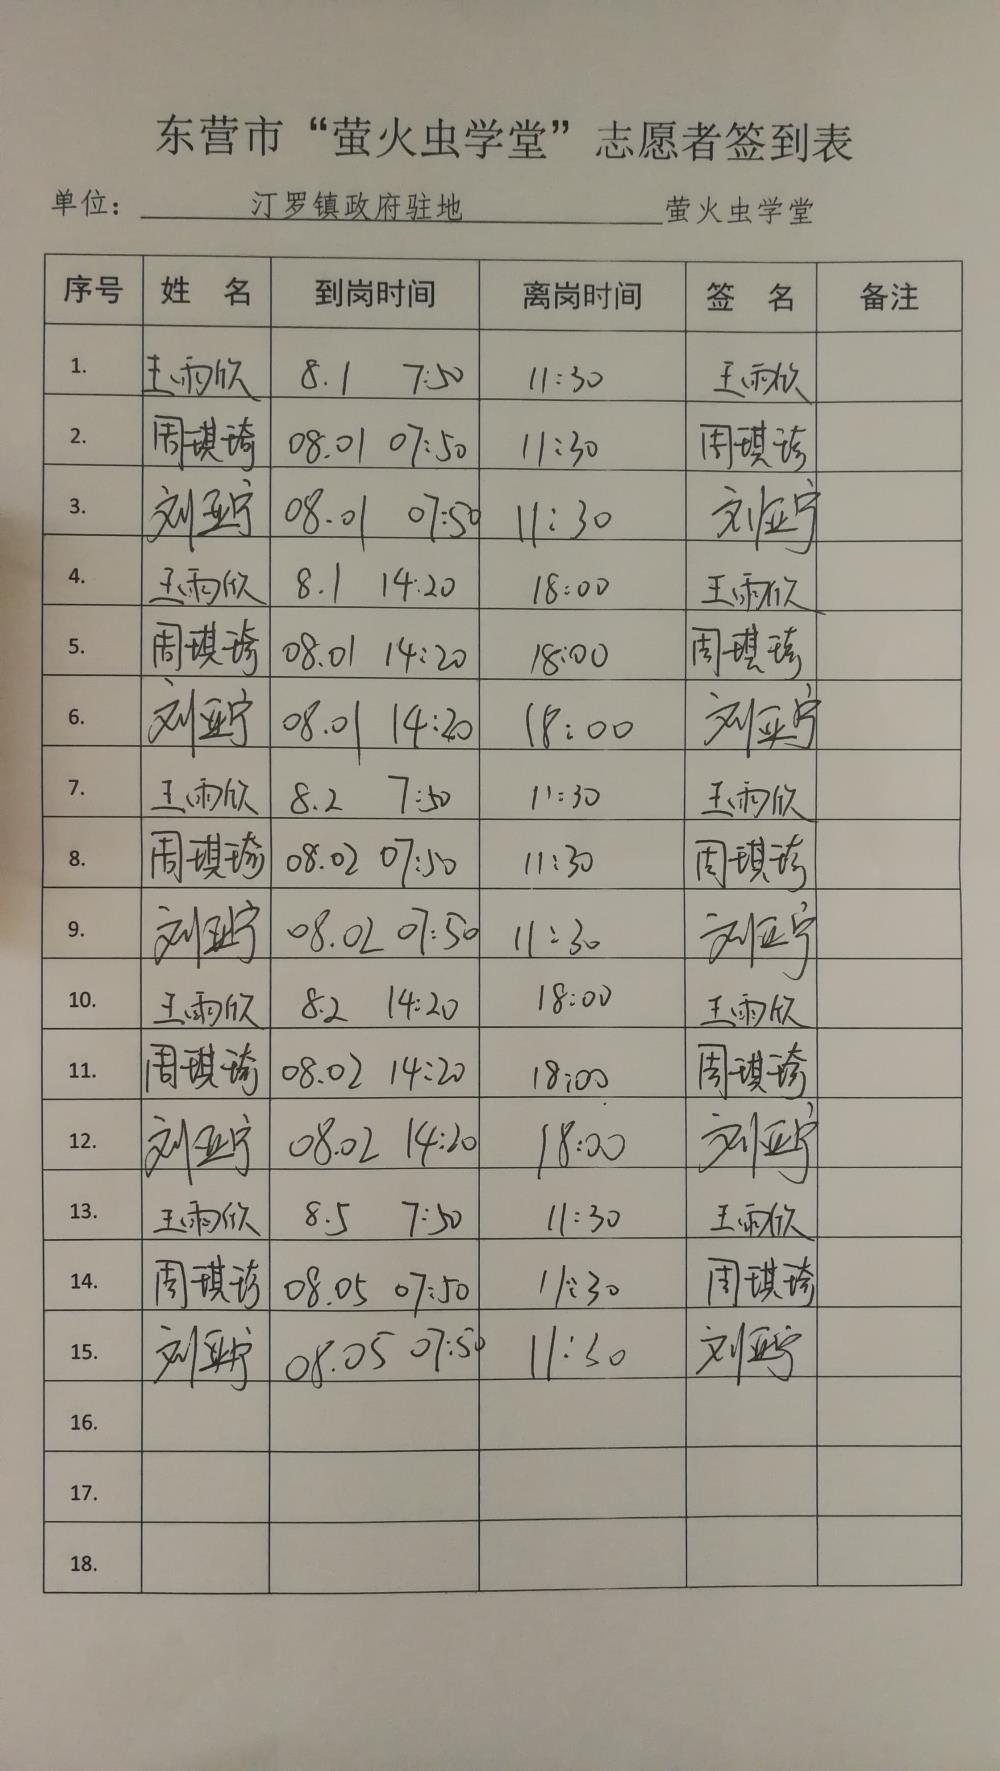 东营市“萤火虫学堂”志愿者签到表
单位： 汀罗镇政府驻地 萤火虫学堂
序号 姓 名 到岗时间 离岗时间 签 名 备注
1. 王雨欣 8.1 7:50 11:30 王雨欣
2. 周琪琦 08.01 07:50 11:30 周琪琦
3. 刘亚宁 08.01 07:50 11:30 刘亚宁
4. 王雨欣 8.1 14:20 18:00 王雨欣
5. 周琪琦 08.01 14:20 18:00 周琪琦
6. 刘亚宁 08.01 14:20 18:00 刘亚宁
7. 王雨欣 8.2 7:50 11:30 王雨欣
8. 周琪琦 08.02 07:50 11:30 周琪琦
9. 刘亚宁 08.02 07:50 11:30 刘亚宁
10. 王雨欣 8.2 14:20 18:00 王雨欣
11. 周琪琦 08.02 14:20 18:00 周琪琦
12. 刘亚宁 08.02 14:20 18:00 刘亚宁
13. 王雨欣 8.5 7:50 11:30 王雨欣
14. 周琪琦 08.05 07:50 11:30 周琪琦
15. 刘亚宁 08.05 07:50 11:30 刘亚宁
16.
17.
18.